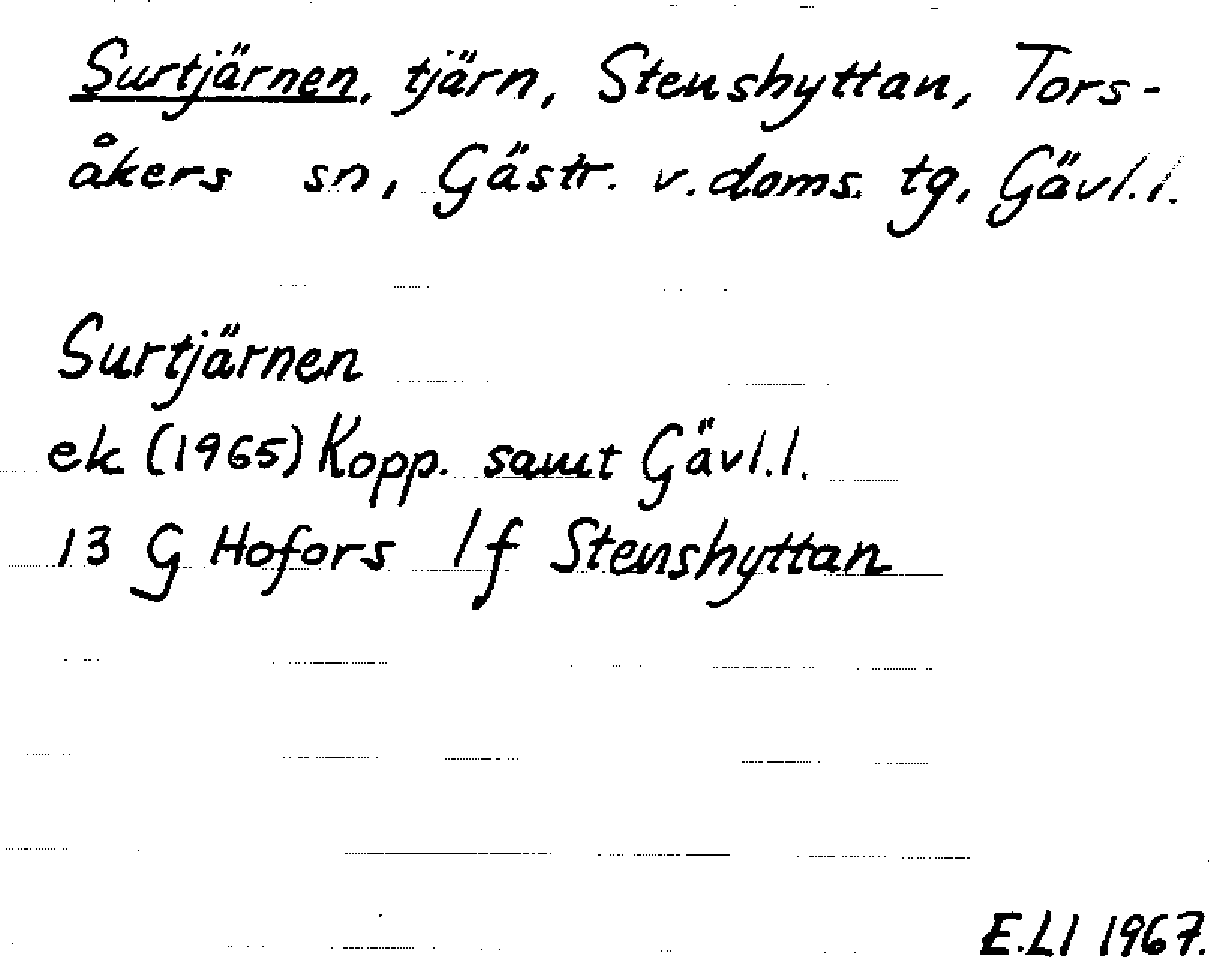 Surtjärnen, tjärn, Stenshyttan, Tors-
åkers sn, Gästr. v. doms. tg, Gävl.l.
Surtjärnen
ek (1965) Kopp. samt Gävl.l.
13 G Hofors 1f Stenshyttan
E.Ll 1967.